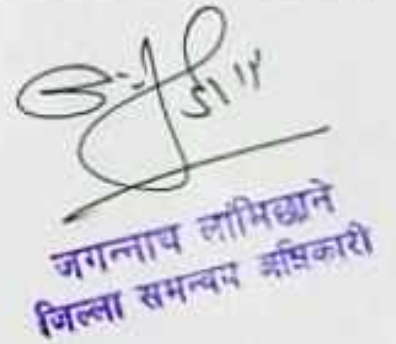 ५।१२
जगन्नाथ लामिछाने
जिल्ला समन्वय अधिकारी